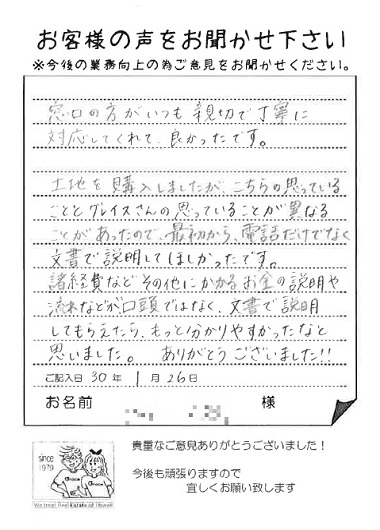 お客様の声をお聞かせ下さい
※今後の業務向上の為ご意見をお聞かせください。
窓口の方がいつも親切で丁寧に
対応してくれて、良かったです。
土地を購入しましたが、こちらの思っている
こととグレイスさんの思っていることが異なる
ことがあったので、最初から、電話だけでなく
文書で説明してほしかったです。
諸経費などその他にかかるお金の説明や
流れなどが口頭ではなく、文書で説明
してもらえたら、もっと分かりやすかったなと
思いました。 ありがとうございました!!
ご記入日 30 年 1 月 26 日
お名前 様
since
1979
貴重なご意見ありがとうございました！
今後も頑張りますので
宜しくお願い致します